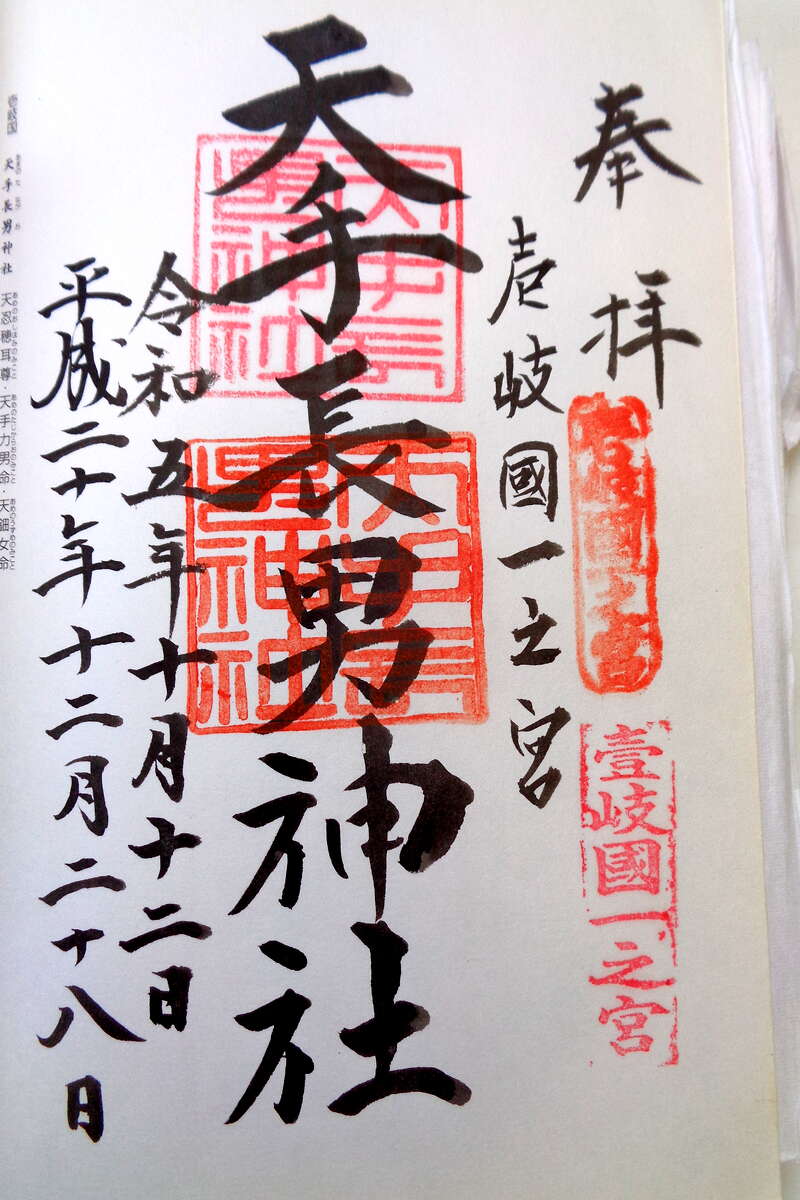 奉拝
壱岐國一之宮
壹岐國一之宮
天手長男神社
令和五年十月十二日
平成二十年十二月二十八日
壱岐国 天手長男神社 天忍穂耳尊・天手力男命・天鈿女命